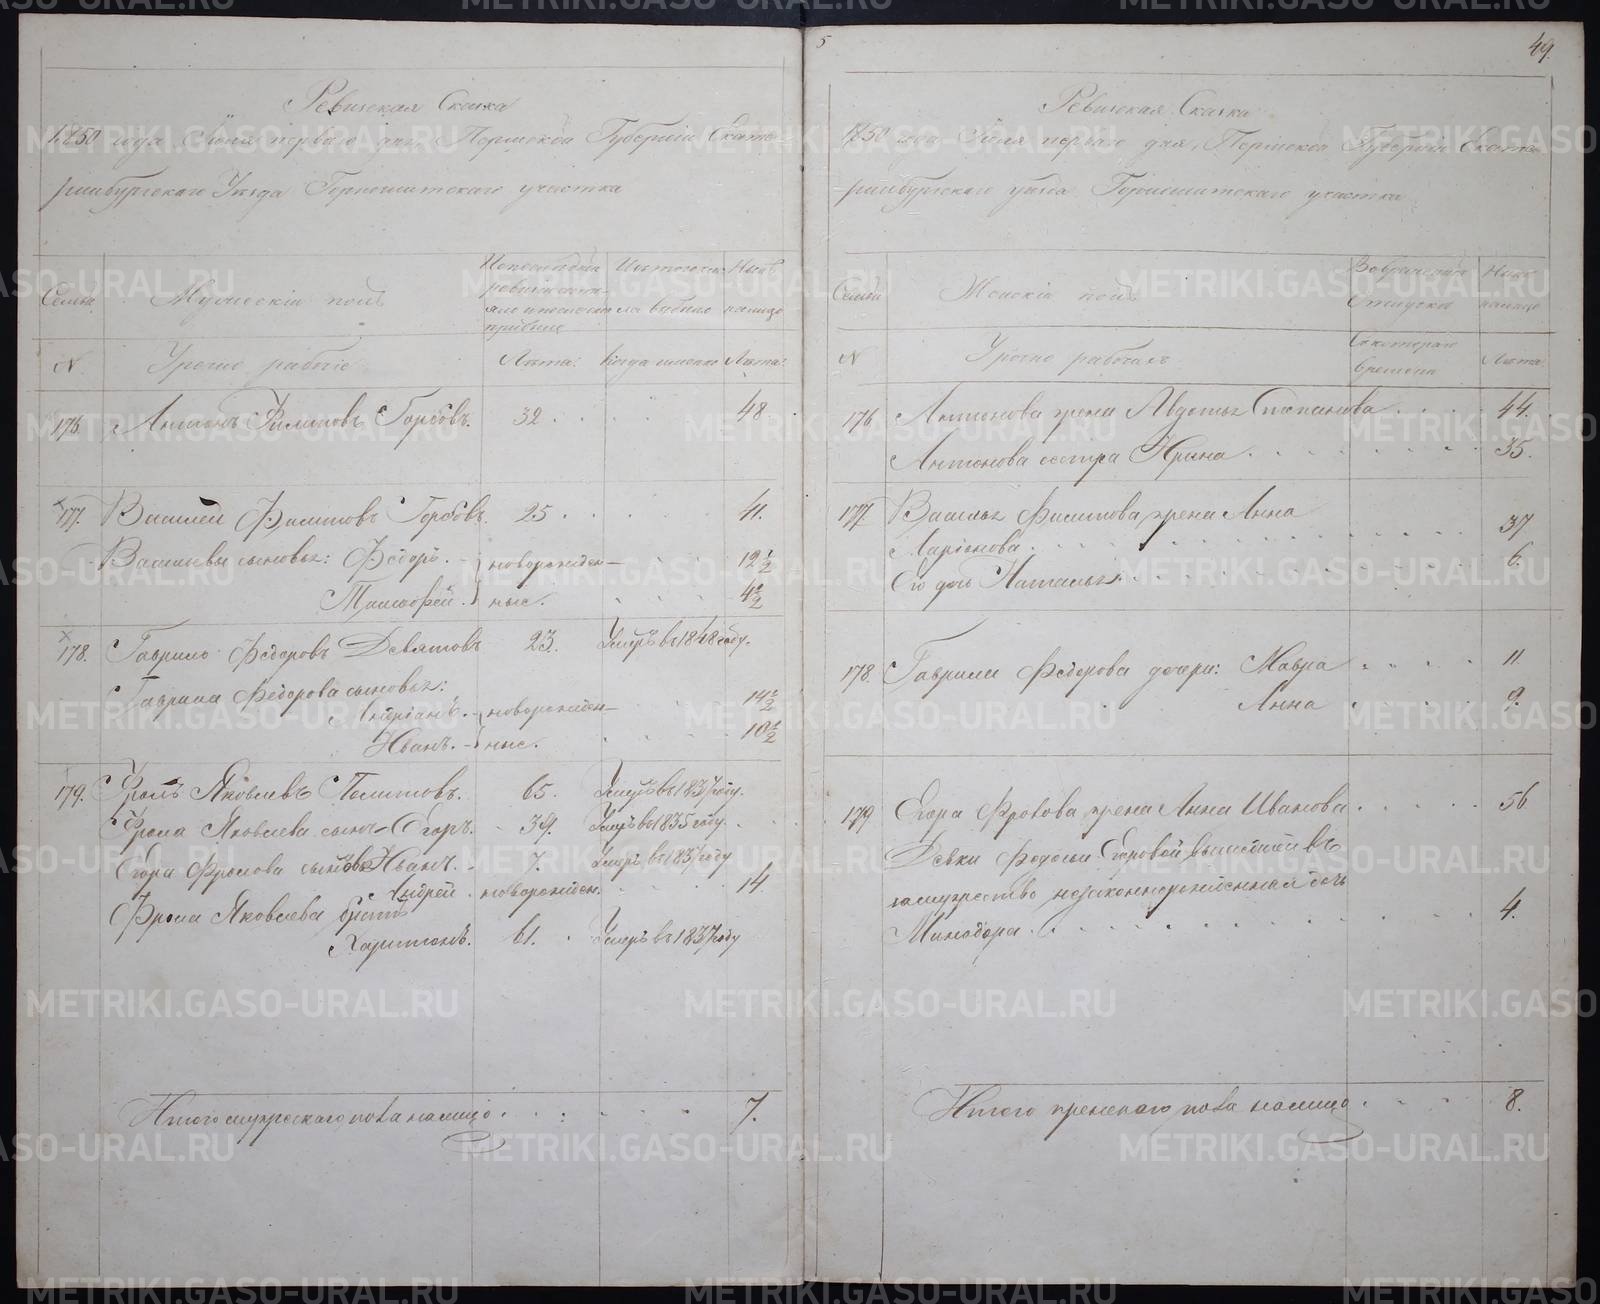 Ревизская Сказка
1850 года Июня перваго дня, Пермской Губернiи Екате-
ринбургскаго Уезда Горнощитскаго участка
Семьи Мужескiй полъ
Изъ того числа выбыло
Ныне налицо
N Урочно рабочiе Лета: Когда именно Лета:
176 Антонъ Филиповъ Горбовъ. 32 48
177. Василей Филиповъ Горбовъ. 25 41.
Васильевы сыновья: Федоръ новорожден- 12 1/2
Тимофей ные. 4 1/2
178. Гаврило Федоровъ Девятовъ 23. Умеръ въ 1848 году.
Гаврила Федорова сыновья:
Андрiанъ. новорожден- 14 1/2
Иванъ. ные. 10 1/2
179. Фролъ Яковлевъ Политовъ. 65. Умеръ въ 1837 году.
Фрола Яковлева сынъ Егоръ. 39. Умеръ въ 1835 году.
Егора Фролова сыновья Иванъ. 7. Умеръ въ 1837 году
Андрей новорожден. 14
Фрола Яковлева братъ
Харитонъ. 61. Умеръ въ 1837 году
Итого мужескаго пола налицо 7.
5
49.
Ревизская Сказка
1850 года Июня перваго дня, Пермской Губернiи Екате-
ринбургскаго уезда Горнощитскаго участка
Семьи Женскiй полъ Во временной отлучке Ныне налицо
N Урочно рабочихъ Съ котораго времени Лета
176 Антонова жена Авдотья Степанова 44.
Антонова сестра Ирина 35.
177. Василья Филипова жена Анна
Ларiонова. 37
Его дочь Наталья. 6.
178. Гаврила Федорова дочери: Мавра 11
Анна 9.
179 Егора Фролова жена Анна Иванова 56
Девки Федосьи Егоровой вышедшей въ
замужество незаконнорожденная дочь
Минодора. 4.
Итого женскаго пола налицо 8.
METRIKI.GASO-URAL.RU